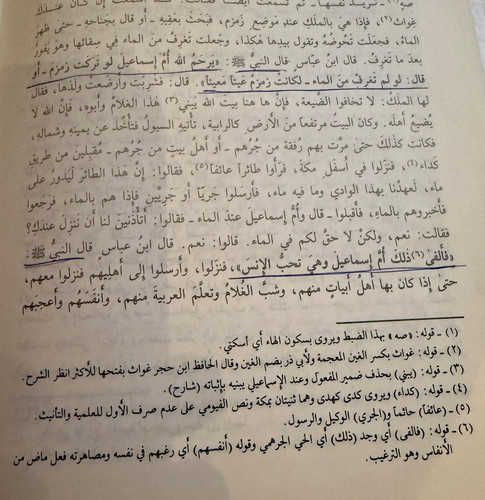 صه
غواث (٢). فإذا هيَ بالملَك عندَ موضِع زمزم، فبَحَثَ بعقِبِه ـ أو قال بجَناحِه ـ حتى ظهرَ
الماءُ، فجعَلَت تُحَوِّضُه وتقول بيدِها هٰكذا، وجعلت تَغرِفُ منَ الماءِ في سِقائها وهو يَفُورُ
بعدَ ما تَغرِفُ. قال ابنُ عبَّاسٍ قال النبيُّ ﷺ: «يَرحَمُ اللهُ أُمَّ إسماعيلَ لو تَرَكَت زمزمَ ـ أو
قال: لو لم تَغرِفْ منَ الماء ـ لكانَتْ زمزمُ عَيناً مَعيناً». قال: فشَرِبَت وأرضَعَتْ ولدَها، فقال
لها الملَكُ: لا تخافوا الضَّيعة، فإنَّ ها هنا بيتَ اللهِ يَبْني(٣) هٰذا الغُلامُ وأبوه، وإنَّ اللهَ لا
يُضيعُ أهلَه. وكان البيتُ مرتفعاً منَ الأرضِ كالرابية، تأتيهِ السيولُ فتأخُذ عن يمينِه وشماله،
فكانت كذٰلكَ حتى مرَّت بهم رُفقة من جُرهُم ـ أو أهلُ بيتٍ من جُرْهُم ـ مقبِلينَ من طريقِ
كَداءٍ(٤)، فنزلوا في أسفَلِ مكة، فرَأوا طائراً عائفاً(٥)، فقالوا: إنَّ هٰذا الطائرَ ليَدورُ على
ماء، لَعهدُنا بهذا الوادي وما فيه ماء، فأرسَلوا جَرِيّاً أو جَرِيَّينِ فإذا هم بالماء، فرجَعوا
فأخبروهم بالماءِ، فأقبلوا ـ قال وأُمُّ إسماعيلَ عندَ الماء ـ فقالوا: أتأذَنينَ لنا أن نَنزِلَ عندَكِ؟
فقالت: نعم، ولكنْ لا حقَّ لكم في الماء. قالوا: نعم. قال ابنُ عباسٍ قال النبيُّ ﷺ:
«فألفى(٦) ذٰلكَ أُمَّ إسماعيلَ وهيَ تحبُّ الإِنسَ»، فنزَلوا، وأرسَلوا إلى أهلِيهم فنزلوا معهم،
حتىٰ إذا كان بها أهلُ أبياتٍ منهم، وشبَّ الغُلامُ وتعلَّمَ العربيةَ منهم، وأنفَسَهُم وأعجبَهم
(١) ـ قوله: «صه» بهذا الضبط ويروى بسكون الهاء أي أسكتي.
(٢) ـ قوله: غواث بكسر الغين المعجمة ولأبي ذر بضم الغين وقال الحافظ ابن حجر غواث بفتحها للأكثر انظر الشرح.
(٣) ـ قوله: (يبني) بحذف ضمير المفعول وعند الإسماعيلي يبنيه بإثباته (شارح).
(٤) ـ قوله: (كداء) ويروى كدى كهدى وهما ثنيتان بمكة ونص الفيومي على عدم صرف الأول للعلمية والتأنيث.
(٥) ـ (عائفاً) حائماً و(الجري) الوكيل والرسول.
(٦) ـ قوله: (فالفى) أي وجد (ذلك) أي الحي الجرهمي وقوله (أنفسهم) أي رغبهم في نفسه ومصاهرته فعل ماض من
الأنفاس وهو الترغيب.